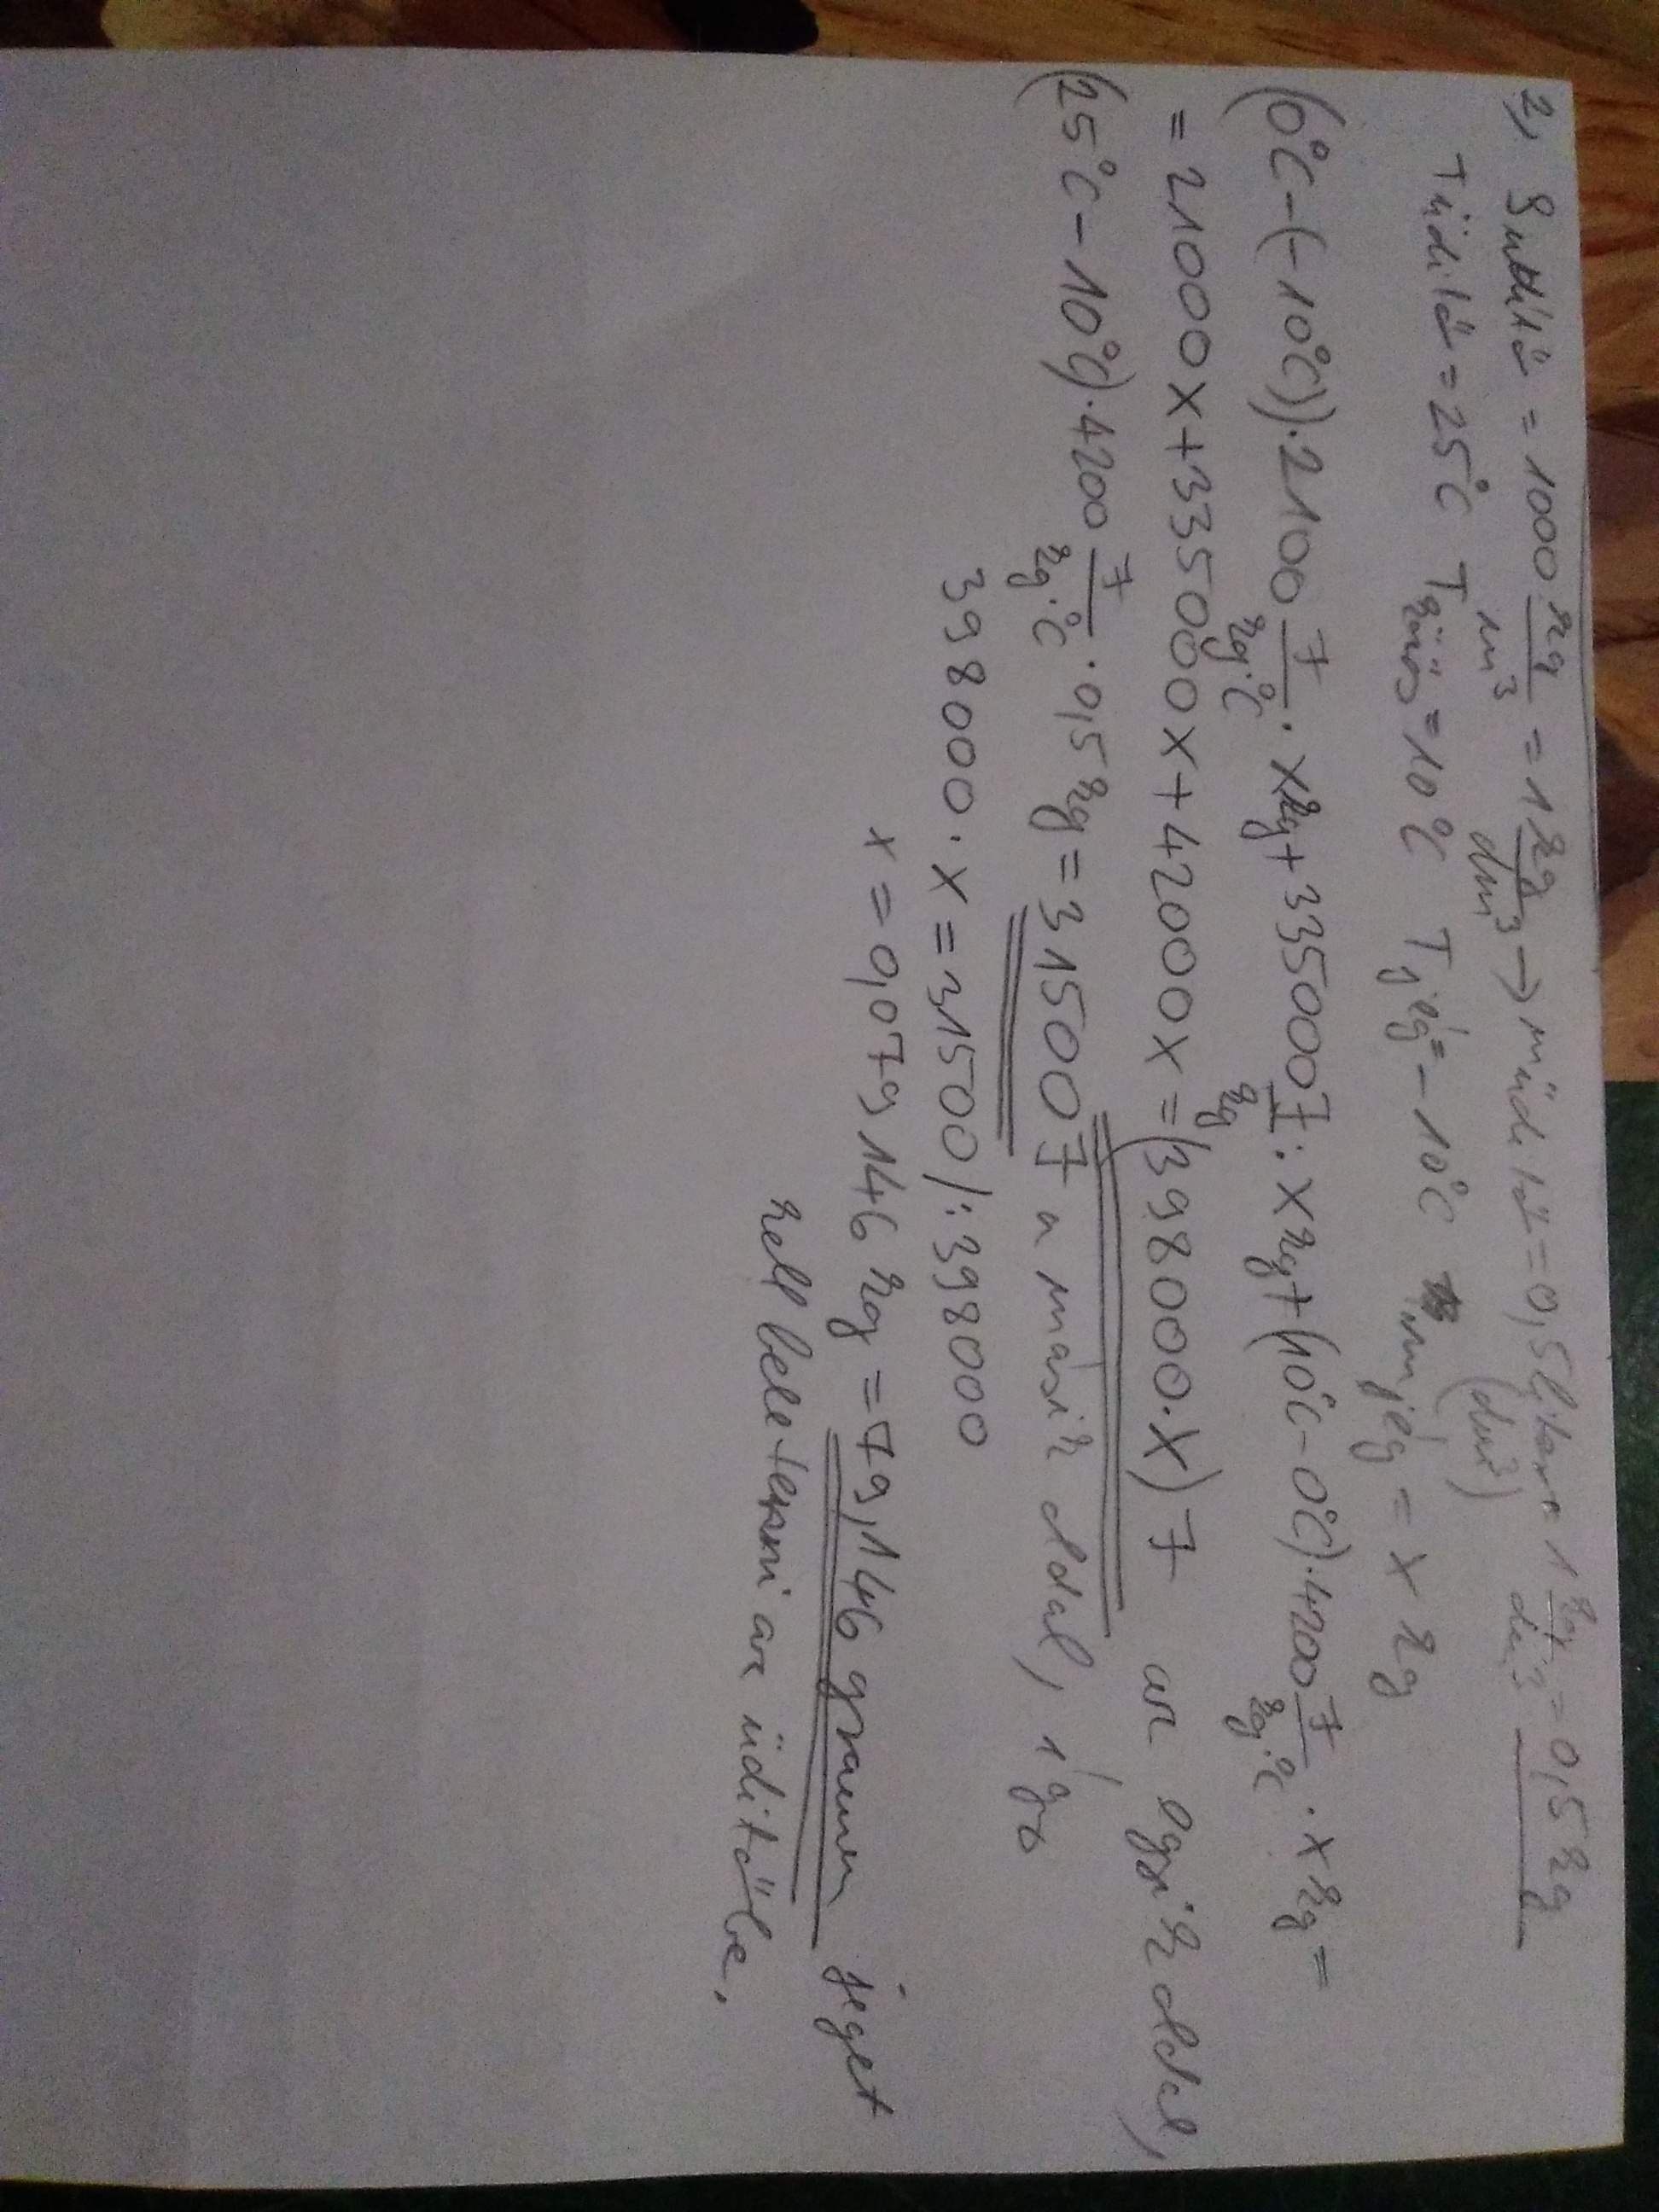 2, ρüdítő = 1000 kg/m³ = 1 kg/dm³ → üdítő = 0,5 liter · 1 kg/dm³ = 0,5 kg
(dm³)
Tüdítő = 25°C Tközös = 10°C Tjég = -10°C mjég = x kg
(0°C-(-10°C))·2100 J/kg·°C · x kg + 335000 J/kg · x kg + (10°C-0°C)·4200 J/kg·°C · x kg =
= 21000x+335000x+42000x = (398000·x) J az egyik oldal,
(25°C-10°C)·4200 J/kg·°C · 0,5 kg = 31500 J a másik oldal, így
398000·x = 31500 /:398000
x = 0,079146 kg = 79,146 gramm jeget
kell beletenni az üdítőbe.